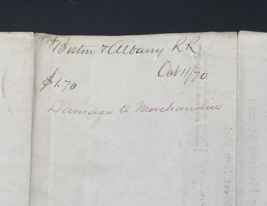 Boston & Albany RR
Oct 11/70
$1.70
Damage to Merchandise